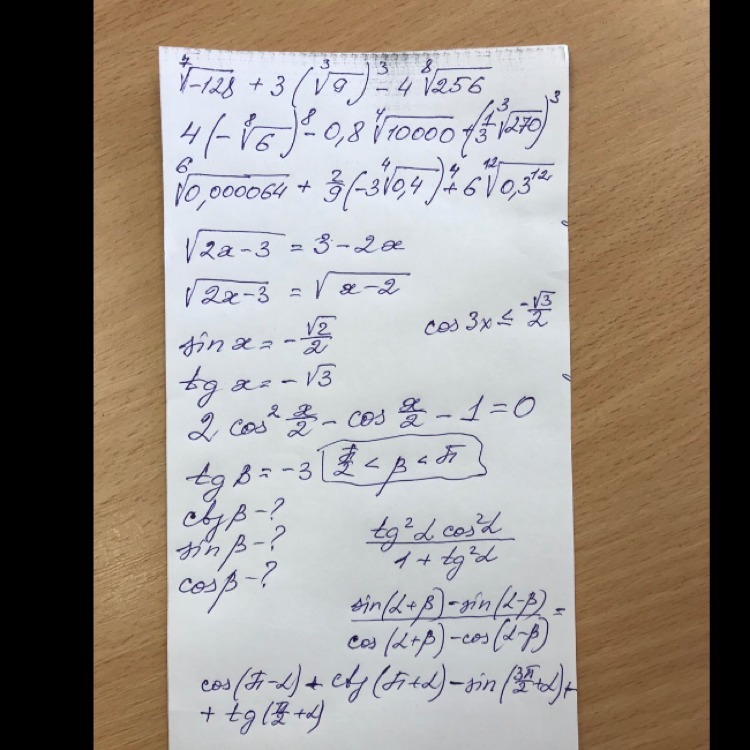 ⁷√-128 + 3 (³√9)³ - 4 ⁸√256
4 (-⁸√6)⁸ - 0,8 ⁴√10000 + (1/3 ³√270)³
⁶√0,000064 + 2/9 (-3 ⁴√0,4)⁴ + 6 ¹²√0,3¹²
√2x-3 = 3-2x
√2x-3 = √x-2
sin x = -√2/2
cos 3x ≤ -√3/2
tg x = -√3
2 cos² x/2 - cos x/2 - 1 = 0
tg β = -3 π/2 < β < π
ctg β - ?
sin β - ?
cos β - ?
tg²α cos²α / 1 + tg²α
sin(α+β) - sin(α-β) / cos(α+β) - cos(α-β) =
cos(π-α) + ctg(π+α) - sin(3π/2+α) +
+ tg(π/2+α)